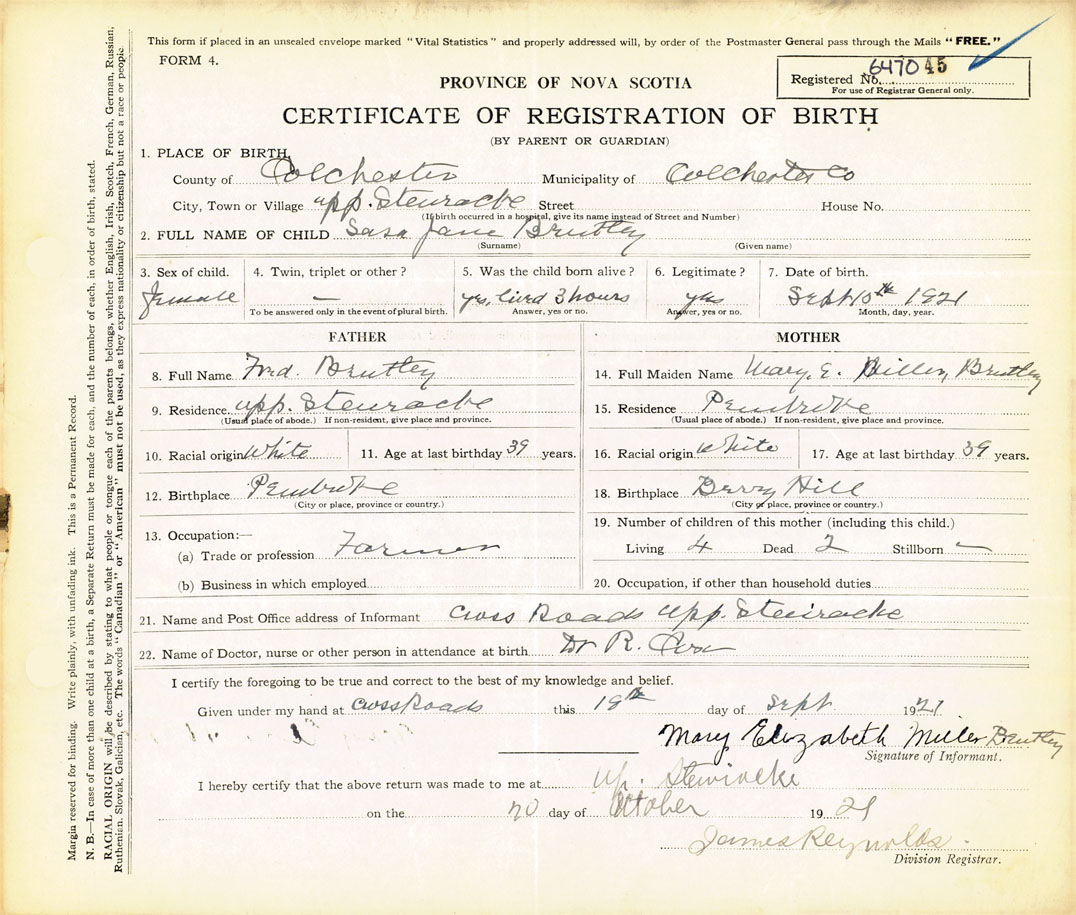 This form if placed in an unsealed envelope marked "Vital Statistics" and properly addressed will, by order of the Postmaster General pass through the Mails "FREE."
FORM 4.
PROVINCE OF NOVA SCOTIA
Registered No. 647045
For use of Registrar General only.
CERTIFICATE OF REGISTRATION OF BIRTH
(BY PARENT OR GUARDIAN)
1. PLACE OF BIRTH
County of Colchester Municipality of Colchester Co
City, Town or Village upp. Stewiacke Street House No.
(If birth occurred in a hospital, give its name instead of Street and Number)
2. FULL NAME OF CHILD Sara Jane Brentley
(Surname) (Given name)
3. Sex of child. 4. Twin, triplet or other? 5. Was the child born alive? 6. Legitimate? 7. Date of birth.
female — yes, lived 3 hours yes Sept 10th 1921
To be answered only in the event of plural birth. Answer, yes or no. Answer, yes or no. Month, day, year.
FATHER
8. Full Name Fred. Brentley
9. Residence upp. Stewiacke
(Usual place of abode.) If non-resident, give place and province.
10. Racial origin White 11. Age at last birthday 39 years.
12. Birthplace Pembroke
(City or place, province or country.)
13. Occupation:—
(a) Trade or profession Farmer
(b) Business in which employed
MOTHER
14. Full Maiden Name Mary. E. Miller Brentley
15. Residence Pembroke
(Usual place of abode.) If non-resident, give place and province.
16. Racial origin White 17. Age at last birthday 39 years.
18. Birthplace Berry Hill
(City or place, province or country.)
19. Number of children of this mother (including this child.)
Living 4 Dead 2 Stillborn —
20. Occupation, if other than household duties
21. Name and Post Office address of Informant Cross Roads upp. Stewiacke
22. Name of Doctor, nurse or other person in attendance at birth Dr R. Cox
I certify the foregoing to be true and correct to the best of my knowledge and belief.
Given under my hand at Cross Roads this 19th day of Sept 1921
Mary Elizabeth Miller Brentley
Signature of Informant.
I hereby certify that the above return was made to me at up. Stewiacke
on the 20 day of October 1921
James Reynolds
Division Registrar.
Margin reserved for binding. Write plainly, with unfading ink. This is a Permanent Record.
N. B.—In case of more than one child at a birth, a Separate Return must be made for each, and the number of each, in order of birth, stated.
RACIAL ORIGIN will be described by stating to what people or tongue each of the parents belongs, whether English, Irish, Scotch, French, German, Russian,
Ruthenian, Slovak, Galician, etc. The words "Canadian" or "American" must not be used, as they express nationality or citizenship but not a race or people